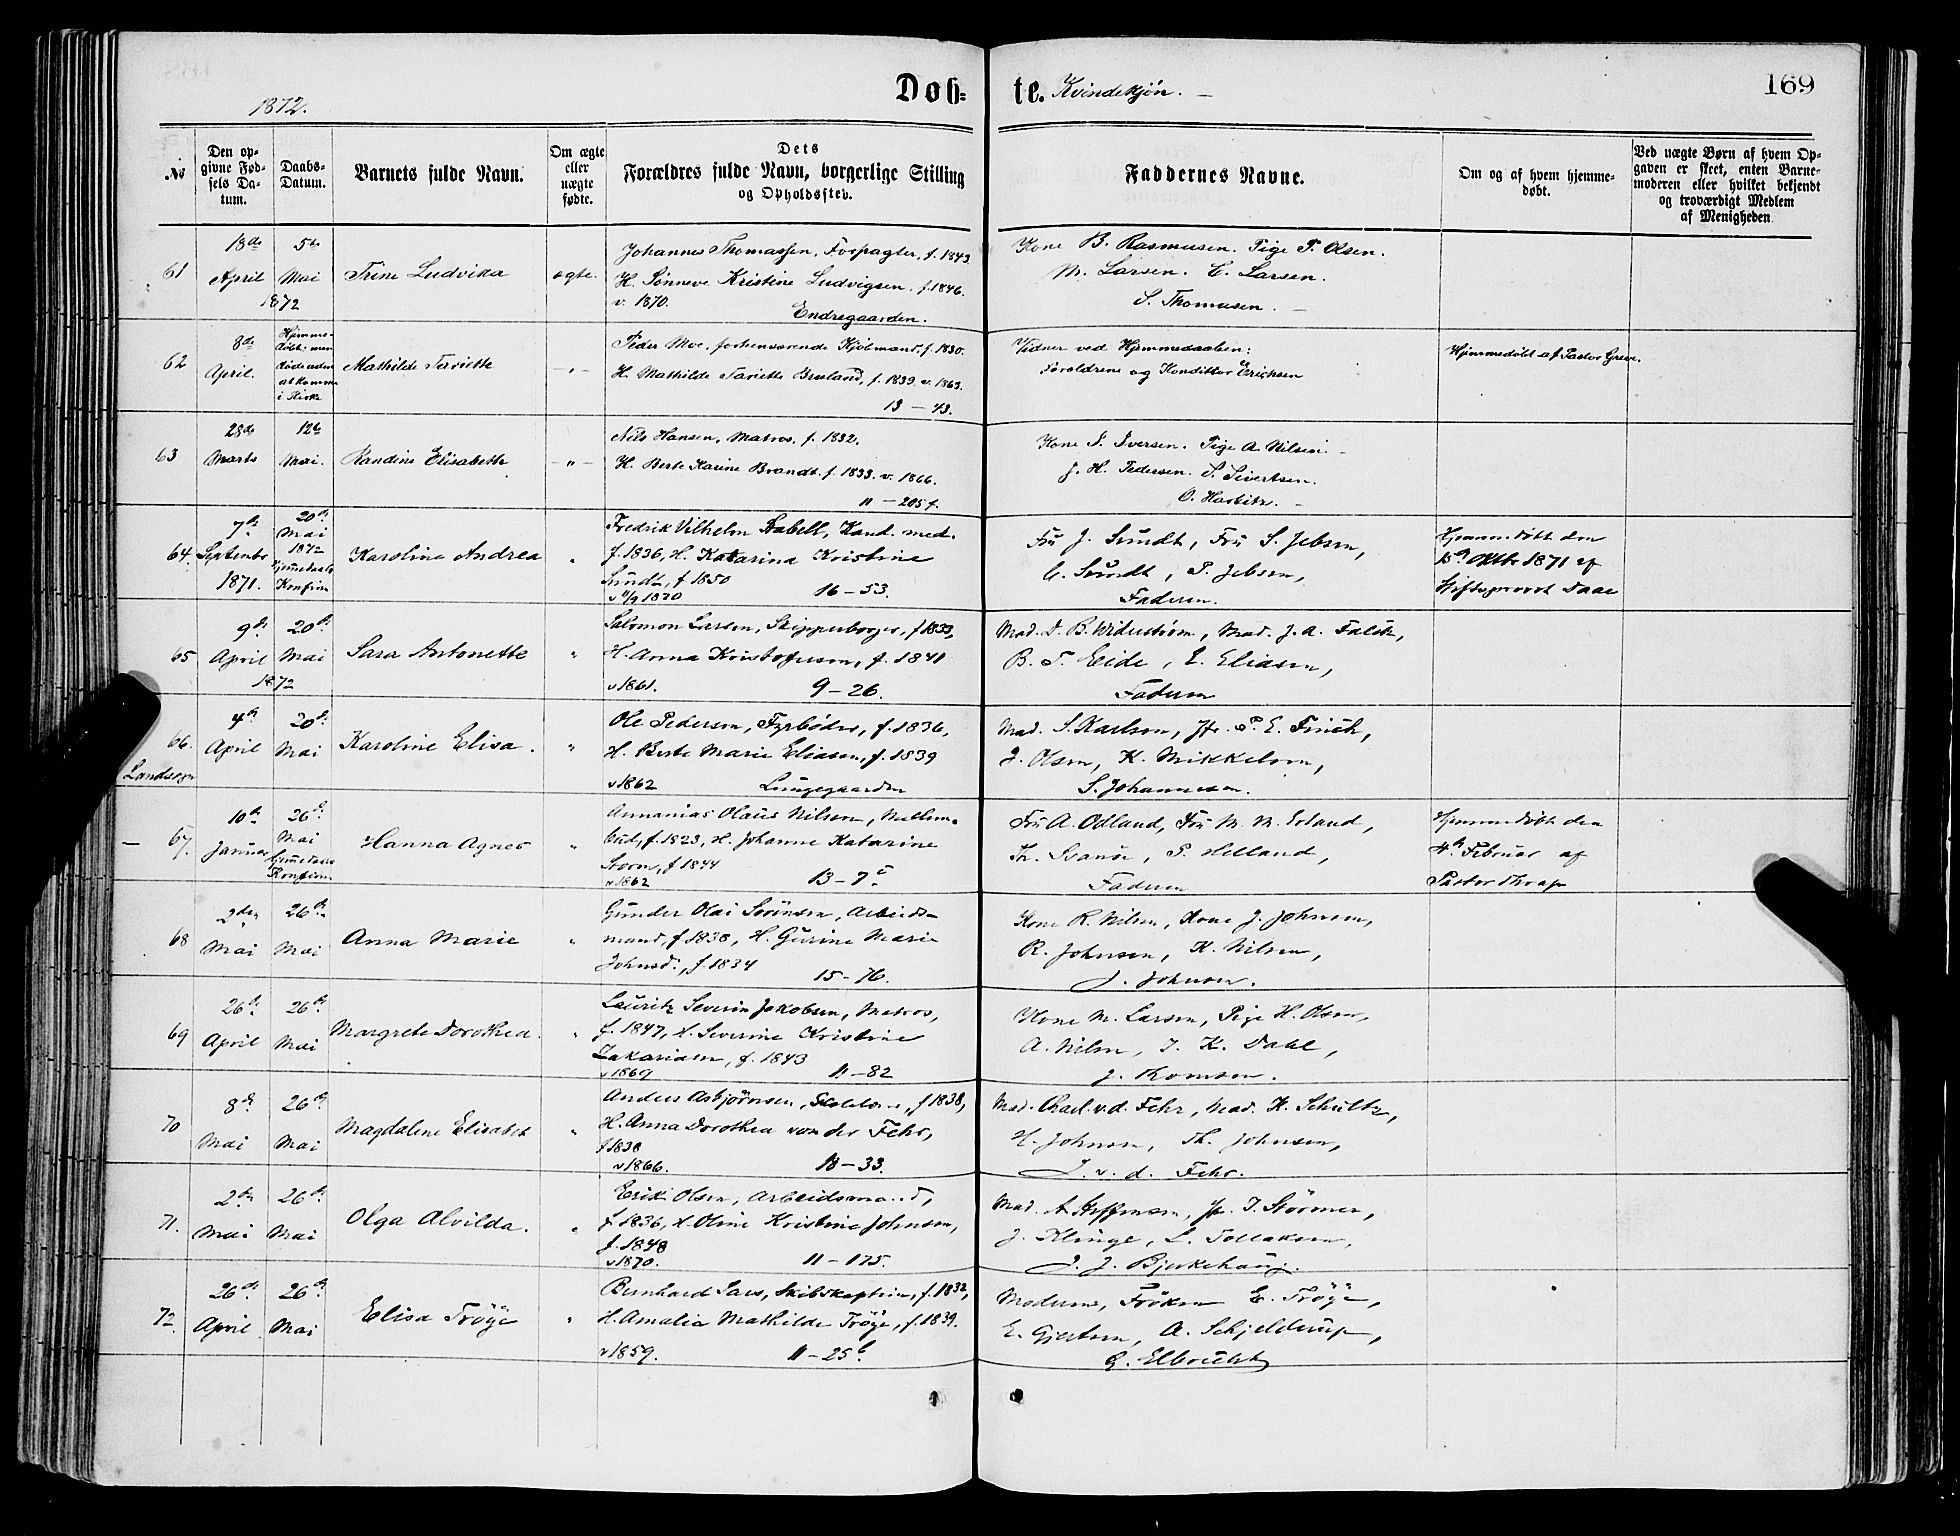 1872.
Døb=
te. Kvindekjøn.
169
No
Den op-
givne Fød-
sels Da-
tum.
Daabs-
Datum.
Barnets fulde Navn.
Om ægte
eller
uægte
fødte.
Dets
Forældres fulde Navn, borgerlige Stilling
og Opholdssted.
Faddernes Navne.
Om og af hvem hjemme-
døbt.
Ved uægte Børn af hvem Op-
gaven er skeet, enten Barne-
moderen eller hvilket bekjendt
og troværdigt Medlem
af Menigheden.
61
18de
April
5te
Mai
1872
Trine Ludvika
ægte.
Johannes Thomassen, Forpagter, f. 1843.
H. Sønneve Kristine Ludvigsen, f. 1846.
v. 1870.
Endregaarden.
Kone B. Rasmusen. Pige P. Olsen.
M. Larsen. E. Larsen.
S. Thomasen.
62
8de
April.
Hjemme-
døbt, men
døde uden
at komme
i Kirke
Mathilde Tariette
- " -
Peder Moe, forhenværende Kjøbmand, f. 1830.
H. Mathilde Tariette Bruland, f. 1839. v. 1863.
13 - 43.
Vidner ved Hjemmedaaben:
Forældrene og Konditor Erichsen
Hjemmedøbt af Pastor Greve.
63
28de
Marts
12te
Mai.
Randine Elisabeth
- " -
Nils Hansen, Matros, f. 1832.
H. Berte Karine Brandt. f. 1833. v. 1866.
11 - 205 f.
Kone S. Iversen. Pige A. Nilsen.
J. H. Pedersen. S. Sivertsen.
64.
7de
Septembr
1871.
20de
Mai
1872
Karoline Andrea
"
Fredrik Vilhelm Stabell, Kand. med.
f. 1836, H. Katarina Kristine
Sundt, f. 1850
v 11/9 1870
16 - 53.
Fru J. Sundt, Fru S. Jebsen,
C. Sundt, P. Jebsen,
Faderen.
Hjemmedøbt den
15de Oktbr 1871 af
Stiftsprovst Daae
65
9de
April
20de
Mai
1872
Sara Antonette
"
Salomon Larsen, Skipperborger, f 1833,
H. Anna Kristofersen, f. 1841
v 1861.
9 - 26.
Mad. D. B. Widerstrøm, Mad. J. A. Falck,
B. T. Eide, E. Eliasen,
Faderen
66.
Landsogn
4de
April
20de
Mai
Karoline Elisa.
"
Ole Pedersen, Fyrbøder, f. 1836,
H. Berte Marie Eliasen, f. 1839
v 1862
Lungegaarden
Mad. S. Karlsen, Jfr. P. E. Finck,
J. Olsen, K. Mikkelsen,
S. Johannesen.
67.
10de
Januar
26de
Mai
Hanna Agnes
"
Annanias Olaus Nilsen,
f. 1823, H. Johanne Katarine
f 1844
v 1862
Fru A. Odland, Fru M. M. Evland,
Th. Svanøe, P. Helland,
Faderen
Hjemmedøbt den
4de Februar af
Pastor Thrap
68
2den
Mai
26de
Mai
Anna Marie
"
Gunder Olai Sørensen, Arbeids-
mand, f. 1838, H. Gurine Marie
Johnsd., f. 1834
15 - 76.
Kone R. Nilsen, Kone J. Johnsen,
R. Johnsen, K. Nilsen,
J. Johnsen.
69
26de
April
26de
Mai
Margrete Dorothea.
"
Lauritz Severin Jakobsen, Matros,
f. 1847, H. Severine Kristine
Zakariasen, f. 1843
v 1869
11 - 82
Kone M. Larsen, Pige H. Olsen,
A. Nilsen, J. K. Dahl,
J. Thomsen.
70
8de
Mai
26de
Mai
Magdalene Elisabet
"
Anders Asbjørnsen, f 1838,
H. Anna Dorothea von der Fehr,
f 1838
v 1866.
18 - 33.
Mad. Charl. v. d. Fehr, Mad. K. Schultz,
H. Johnsen, Th. Johnsen,
J. v. d. Fehr.
71.
2den
Mai
26de
Mai
Olga Alvilda.
"
Erik Olsen, Arbeidsmand,
f. 1836, H. Oline Kristine Johnsen,
f. 1848
v 1870.
11 - 175.
Mad. A Steffensen, Jfr. I. Størmer,
J. Klinge, L. Tollaksen,
J. J. Bjerkehaug.
72.
26de
April
26de
Mai
Elisa Trøye
"
Bernhard Sars, Skibskaptein, f. 1832,
H. Amalia Mathilde Trøye, f. 1839.
v 1859.
11 - 25b
Moderen, Frøken E. Trøye,
E. Gjertsen, A. Schjelderup,